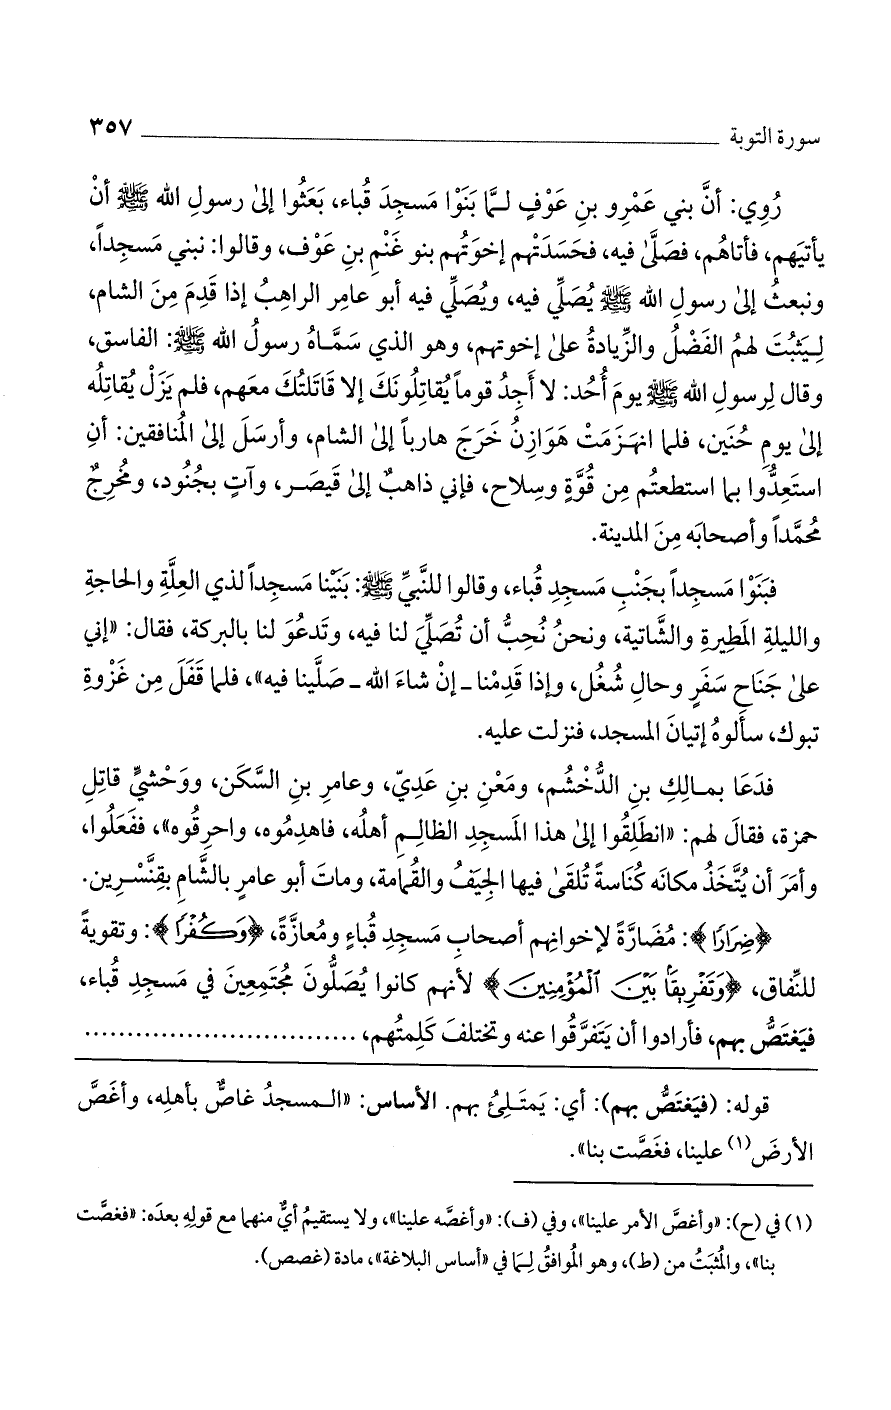 سورة التوبة ٣٥٧
رُوِي: أنَّ بني عَمْرِو بنِ عَوْفٍ لـمَّا بَنَوْا مَسجِدَ قُباء، بَعَثُوا إلىٰ رسولِ الله ﷺ أنْ
يأتيَهم، فأتاهُم، فصَلَّىٰ فيه، فحَسَدَتْهم إخوَتُهم بنو غَنْمِ بنِ عَوْف، وقالوا: نبني مَسجِداً،
ونبعثُ إلىٰ رسولِ الله ﷺ يُصَلِّي فيه، ويُصَلِّي فيه أبو عامِرِ الراهِبُ إذا قَدِمَ مِنَ الشام،
لِـيَثبُتَ لهمُ الفَضْلُ والزِّيادةُ علىٰ إخوتِهم، وهو الذي سَمَّـاهُ رسولُ الله ﷺ: الفاسق،
وقال لِرسولِ الله ﷺ يومَ أُحُد: لا أَجِدُ قوماً يُقاتِلُونَكَ إلا قَاتَلتُكَ معَهم، فلم يَزَلْ يُقاتِلُه
إلىٰ يومِ حُنَين، فلما انهـزَمَتْ هَوَازِنُ خَرَجَ هارباً إلىٰ الشام، وأرسَلَ إلىٰ المُنافقين: أنِ
استَعِدُّوا بما استطعتُم مِن قُوَّةٍ وسِلاح، فإني ذاهبٌ إلىٰ قَيصَـر، وآتٍ بجُنُود، ومُخرِجٌ
مُحمَّداً وأصحابَه مِنَ المدينة.
فبَنَوْا مَسجِداً بجَنْبِ مَسجِدِ قُباء، وقالوا للنَّبيِّ ﷺ: بَنَيْنا مَسجِداً لذي العِلَّةِ والحاجةِ
والليلةِ المَطِيرةِ والشَّاتية، ونحنُ نُحِبُّ أن تُصَلِّيَ لنا فيه، وتَدعُوَ لنا بالبركة، فقال: «إني
علىٰ جَنَاحِ سَفَرٍ وحالِ شُغُل، وإذا قَدِمْنا ـ إنْ شاءَ الله ـ صَلَّينا فيه»، فلما قَفَلَ مِن غَزْوةِ
تبوك، سألوهُ إتيانَ المسجد، فنزلت عليه.
فدَعَا بمـالِكِ بنِ الدُّخْشُم، ومَعْنِ بنِ عَدِيّ، وعامرِ بنِ السَّكَن، ووَحْشيٍّ قاتِلِ
حمزة، فقالَ لهم: «انطَلِقُوا إلىٰ هذا المَسجِدِ الظالِـمِ أهلُه، فاهدِمُوه، واحرِقُوه»، ففَعَلُوا،
وأمَرَ أن يُتَّخَذُ مكانَه كُنَاسةً تُلقَىٰ فيها الجِيَفُ والقُمامة، وماتَ أبو عامرٍ بالشَّامِ بقِنَّسْرِين.
﴿ضِرَارًا﴾: مُضَارَّةً لإخوانِهم أصحابِ مَسجِدِ قُباءٍ ومُعازَّةً، ﴿وَكُفْرًا﴾: وتقويةً
للنِّفاق، ﴿وَتَفْرِيقًا بَيْنَ ٱلْمُؤْمِنِينَ﴾ لأنهم كانوا يُصَلُّونَ مُجتَمِعِينَ في مَسجِدِ قُباء،
فيَغتَصُّ بهم، فأرادوا أن يَتَفرَّقُوا عنه وتختلفَ كَلِمتُهم، ................................
قوله: (فيَغتَصُّ بهم): أي: يَمتَـلِئُ بهم. الأساس: «الـمسجدُ غاصٌّ بأهلِه، وأغَصَّ
الأرضَ(١) علينا، فغَصَّت بنا».
(١) في (ح): «وأغصَّ الأمر علينا»، وفي (ف): «وأغصَّه علينا»، ولا يستقيمُ أيٌّ منهما مع قولِهِ بعدَه: «فغصَّت
بنا»، والمُثبَتُ من (ط)، وهو المُوافقُ لِـمَا في «أساس البلاغة»، مادة (غصص).